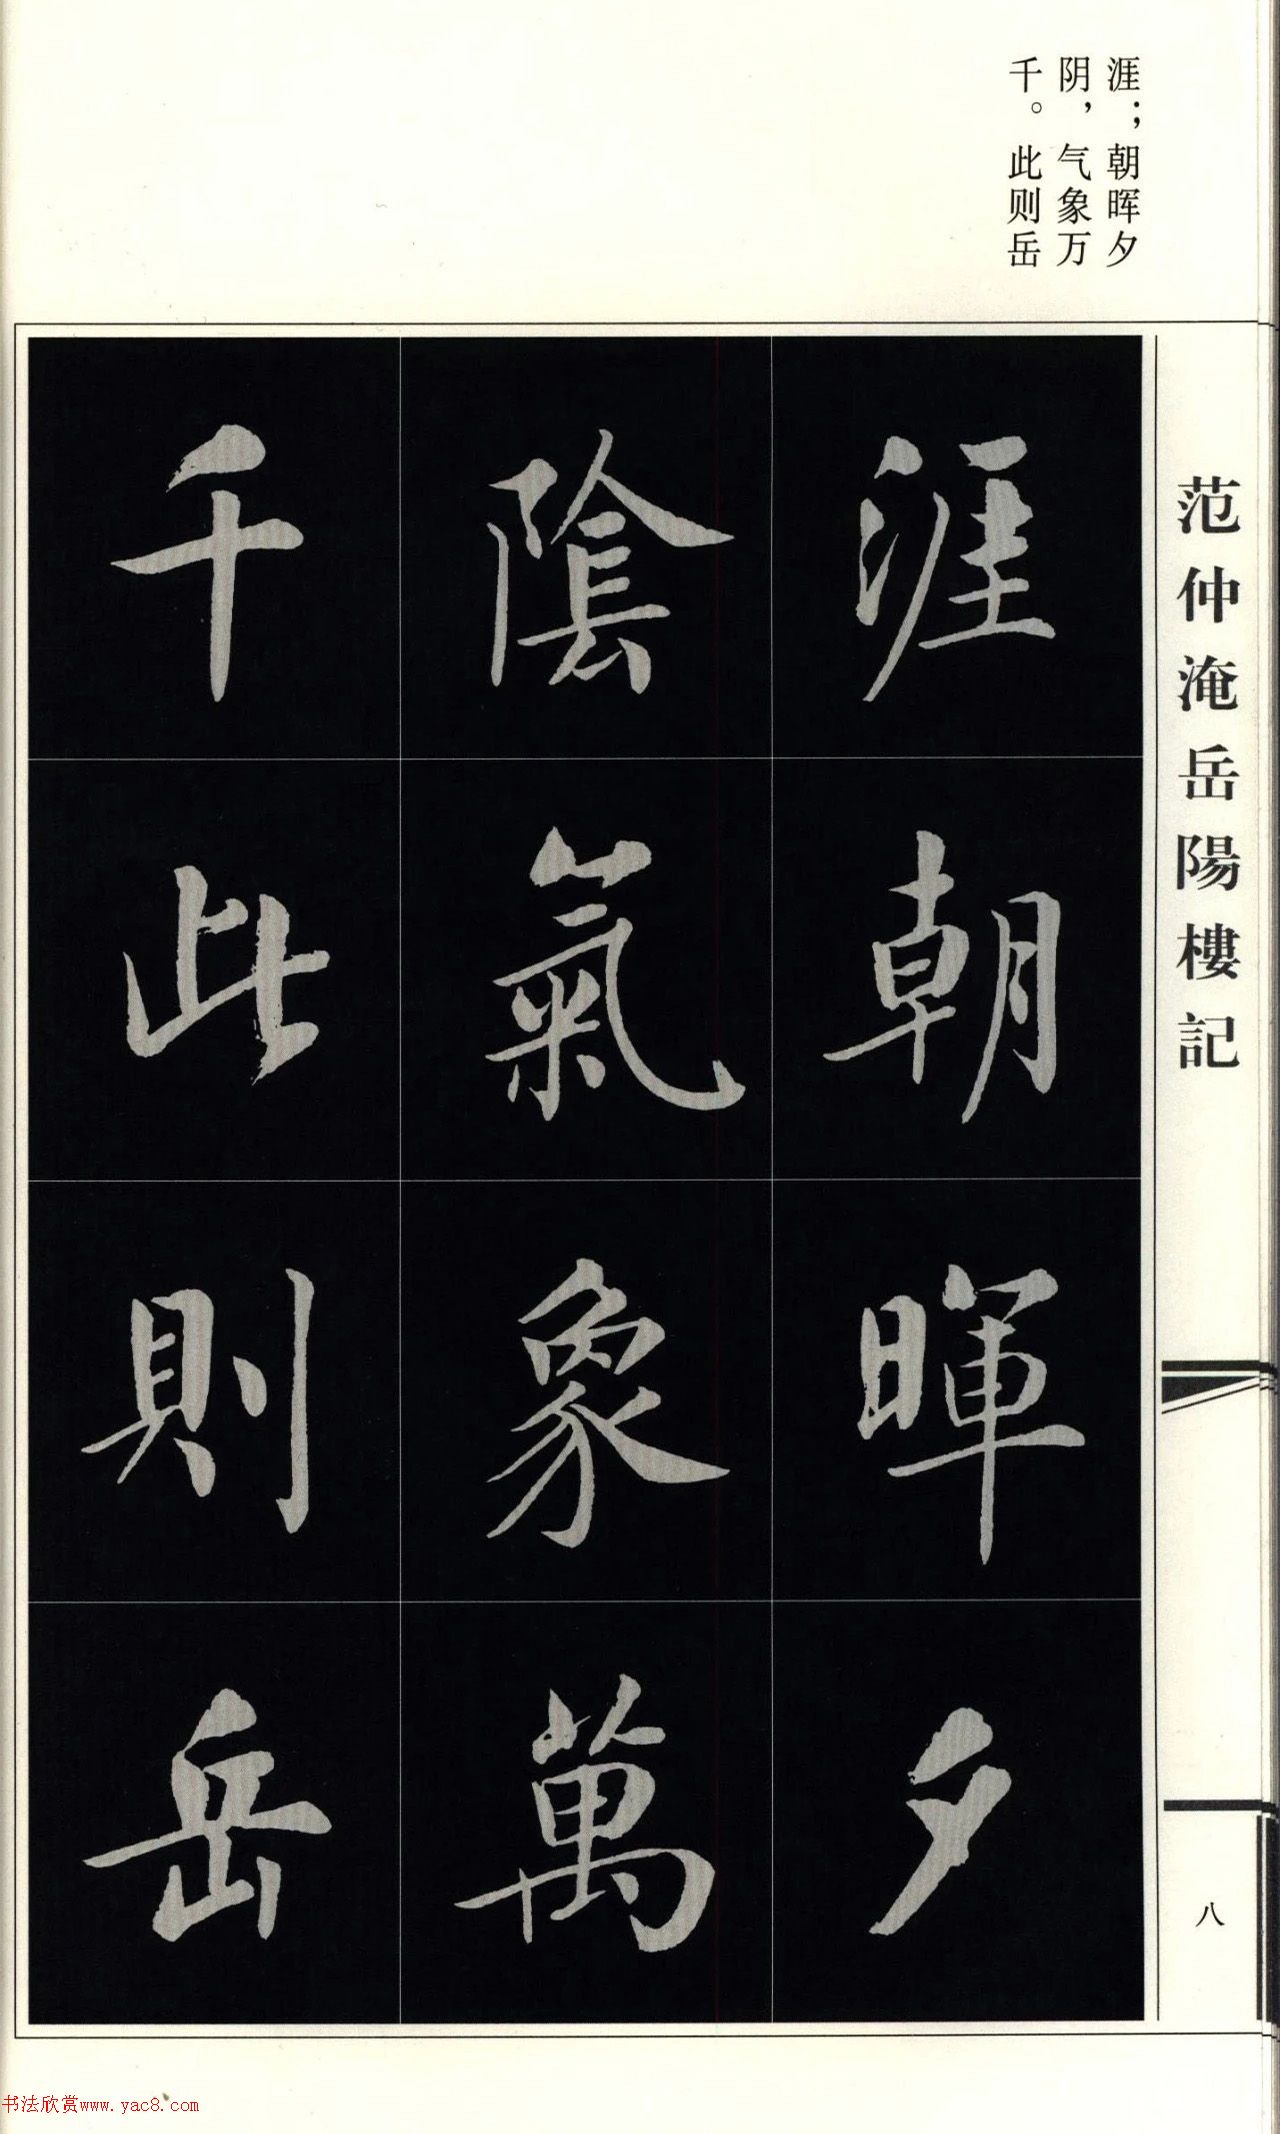 涯；朝晖夕
阴，气象万
千。此则岳
范仲淹岳陽樓記
涯朝暉夕
陰氣象萬
千此則岳
八
书法欣赏www.yac8.com